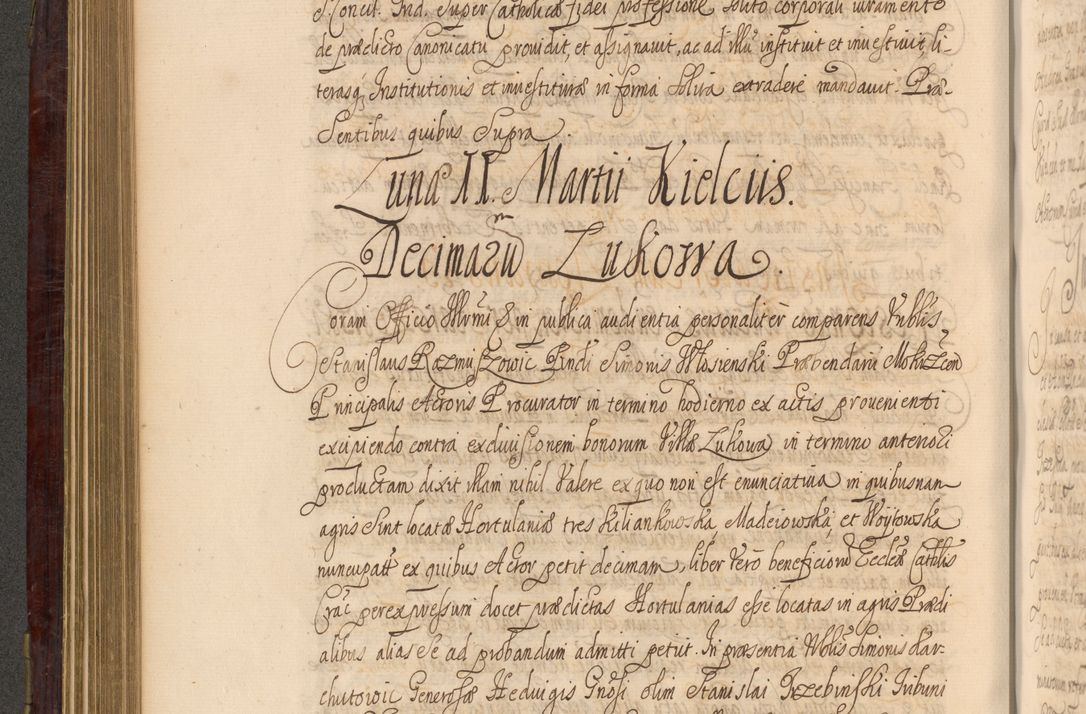 Concil. Trid. super Catholicæ fidei professione solito corporali iuramento
de prædicto Canonicatu providit, et assignavit, ac ad illũ instituit et investivit, li-
terasq Institutionis et investituræ in forma solita extradere mandavit. Præ-
sentibus quibus supra.
Luna II. Martii Kielciis.
Decimarũ Lukowa.
Coram Officio Illrmi & in publica audientia personaliter comparens Nobilis
Stanislaus Razmuszowic Rndi Simonis Włosienski Præbendarii
Principalis Actoris Procurator in termino hodierno ex actis provenienti
excipiendo contra exdivisionem bonorum Villæ Lukowa in termino anteriori
productam dixit illam nihil valere ex quo non est enunciativa in quibusnam
agris sint locatæ Hortulaniæ tres Kiliankowska Madeiowska, et Woytowska
nuncupatæ ex quibus Actor petit decimam, liber verò beneficiorũ Ecclæ Cathlis
Crac perexpressum docet prædictas Hortulanias esse locatas in agris Prædi
alibus alias se ad probandum admitti petiit. In præsentia Nobilis Simonis Kar-
chutowic Generosæ Hedvigis Gnosi olim Stanislai Trzebinski Tribuni